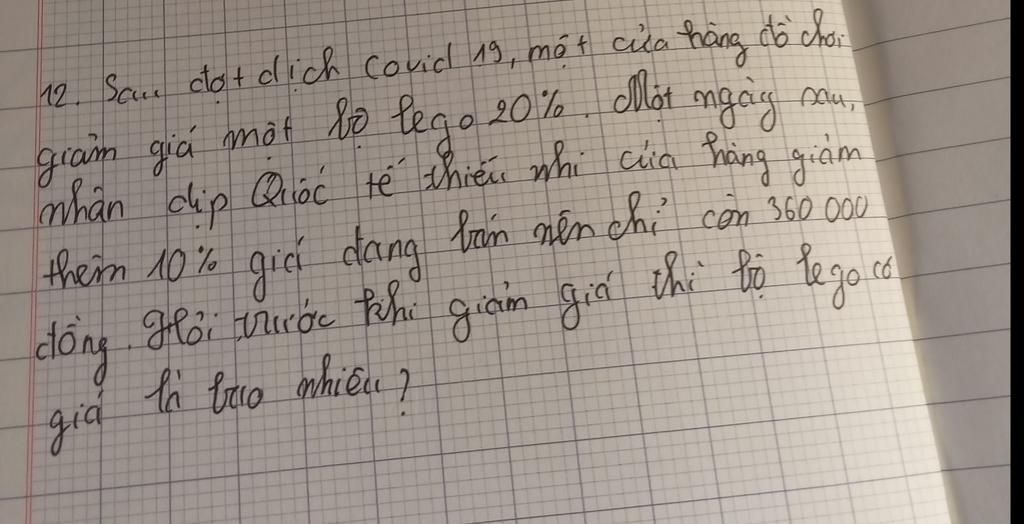 12. Sau đợt dịch covid 19, một cửa hàng đồ chơi
giảm giá một bộ lego 20%. Một ngày sau,
nhân dịp Quốc tế thiếu nhi cửa hàng giảm
thêm 10% giá đang bán nên chỉ còn 360 000
đồng. Hỏi trước khi giảm giá thì bộ lego có
giá là bao nhiêu?